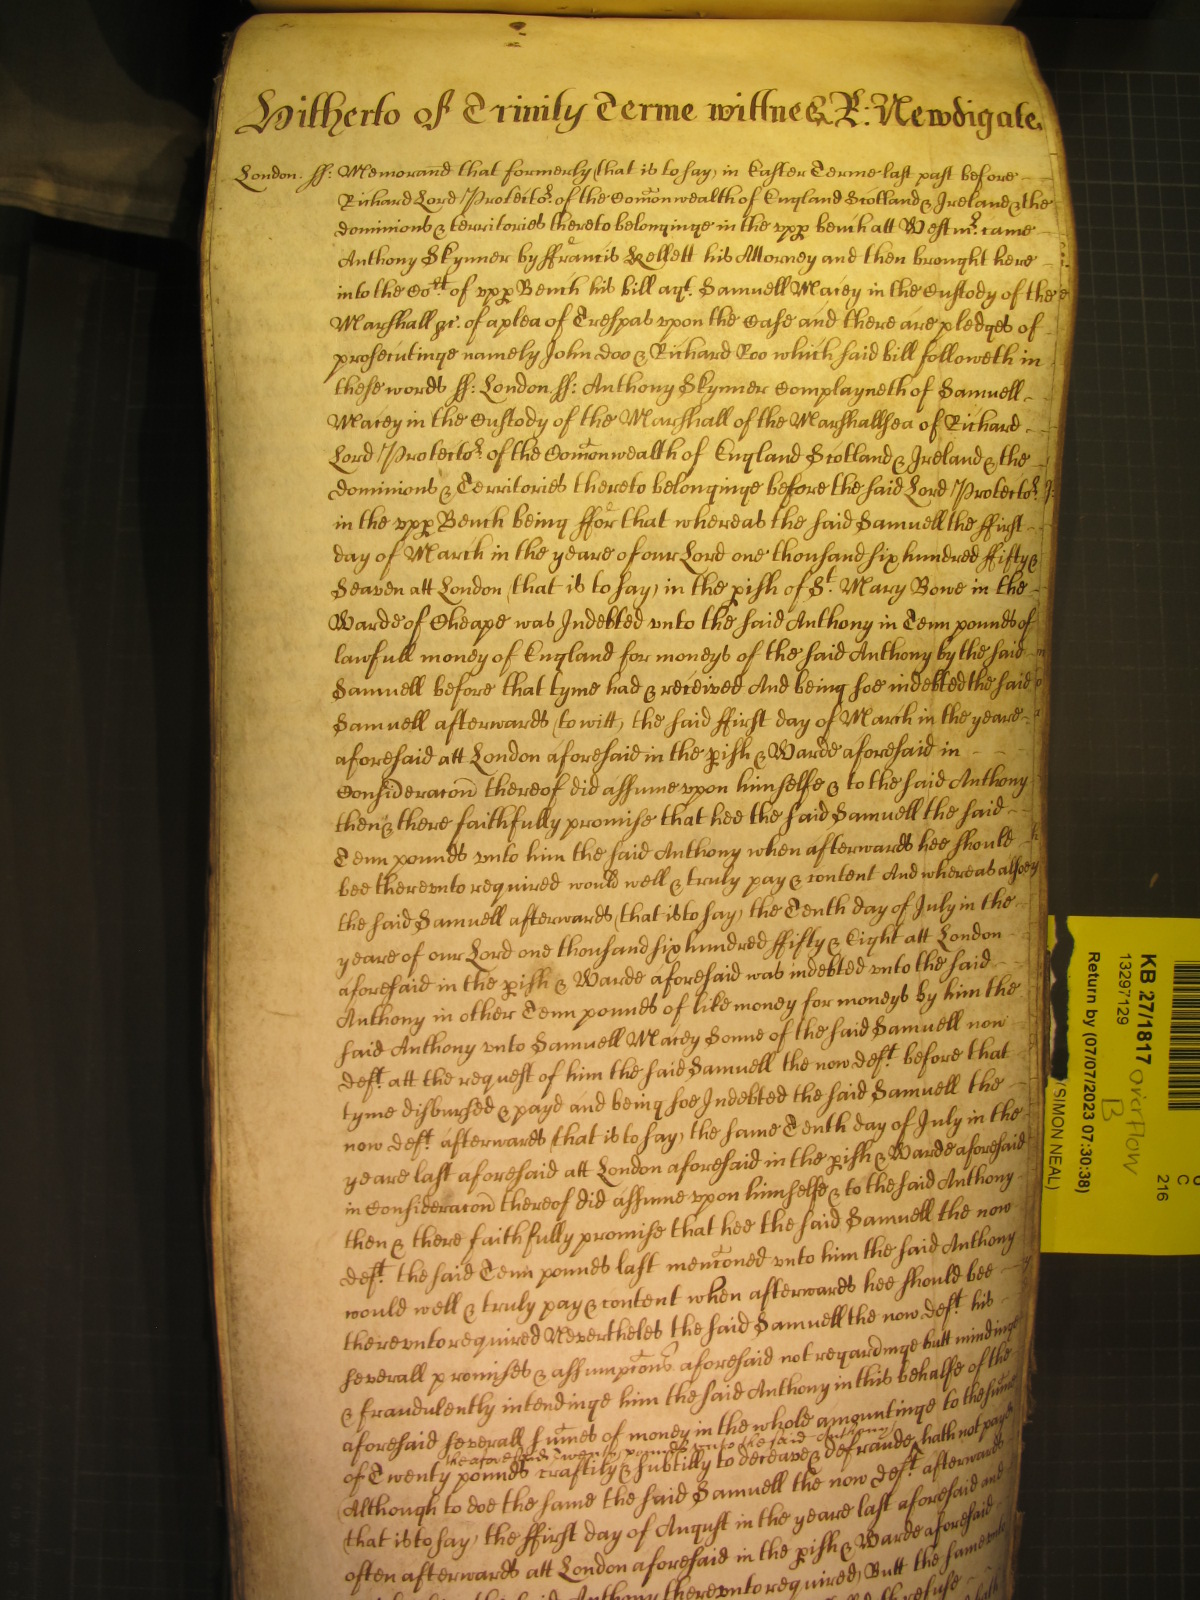 Hitherto of Trinity Terme wittnes R: Newdigate.
London. ff: Memorand that formerly (that is to say) in Easter Terme last past before
Richard Lord Protector. of the Comonwealth of England Scotland & Ireland & the
dominions & territories thereto belonginge in the vpp bench att Westmr. came
Anthony Skynner by ffrancis Kellett his Attorney and then brought here
into the Cort. of vpp Bench his bill agt. Samuell Macey in the Custody of the
Marshall &c. of a plea of Trespas vpon the Case and there are pledges of
prosecutinge namely John Doo & Richard Roo which said bill followeth in
these words ff: London ff: Anthony Skynner Complayneth of Samuell
Macey in the Custody of the Marshall of the Marshallsea of Richard
Lord Protector. of the Comonwealth of England Scotland & Ireland & the
dominions & Territories thereto belonginge before the said Lord Protector.
in the vpp Bench being ffor that whereas the said Samuell the ffirst
day of March in the yeare of our Lord one thousand six hundred ffifty &
Seaven att London (that is to say) in the pish of St. Mary Bowe in the
Warde of Cheape was Indebted vnto the said Anthony in Tenn pounds of
lawfull money of England for moneys of the said Anthony by the said
Samuell before that tyme had & received And being soe indebted the said
Samuell afterwards (to witt) the said ffirst day of March in the yeare
aforesaid att London aforesaid in the pish & Warde aforesaid in
Consideracon thereof did assume vpon himselfe & to the said Anthony
then & there faithfully promise that hee the said Samuell the said
Tenn pounds vnto him the said Anthony when afterwards hee should
bee therevnto required would well & truly pay & content And whereas alsoe
the said Samuell afterwards (that is to say) the Tenth day of July in the
yeare of our Lord one thousand six hundred ffifty & Eight att London
aforesaid in the pish & Warde aforesaid was indebted vnto the said
Anthony in other Tenn pounds of like money for moneys by him the
said Anthony vnto Samuell Macey Sonne of the said Samuell now
deft. att the request of him the said Samuell the now deft. before that
tyme disbursed & payd and being soe Indebted the said Samuell the
now deft. afterwards (that is to say) the same Tenth day of July in the
yeare last aforesaid att London aforesaid in the pish & Warde aforesaid
in Consideracon thereof did assume vpon himselfe & to the said Anthony
then & there faithfully promise that hee the said Samuell the now
deft. the said Tenn pounds last mencioned vnto him the said Anthony
would well & truly pay & content when afterwards hee should bee
therevnto required Nevertheles the said Samuell the now deft. his
severall promises & assumpcons aforesaid not regardinge butt mindinge
& fraudulently intendinge him the said Anthony in this behalfe of the
aforesaid severall sumes of money in the whole amountinge to the sume
the aforesaid Twenty pounds vnto the said Anthony
of Twenty pounds craftily & subtilly to deceave & defraude hath not payd
Although to doe the same the said Samuell the now deft. afterwards
(that is to say) the ffirst day of August in the yeare last aforesaid and
often afterwards att London aforesaid in the pish & Warde aforesaid
Anthony therevnto required) Butt the same
refuse
KB 27/1817
overflow
B
13297129
Return by (07/07/2023 07:30:38)
(SIMON NEAL)
C
216